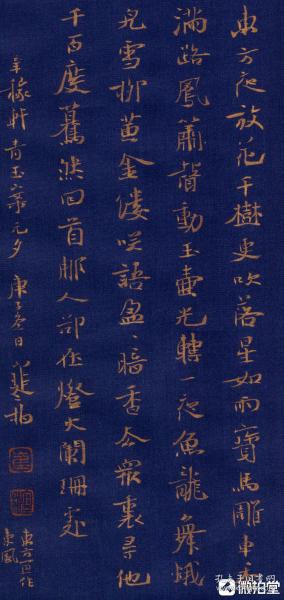 東方夜放花千樹更吹落星如雨寶馬雕車香
滿路鳳簫聲動玉壺光轉一夜魚龍舞蛾
兒雪柳黃金縷咲語盈〻暗香去眾裏尋他
千百度驀然回首那人卻在燈火闌珊處
辛稼軒青玉案元夕 庚子日
東方作
東風
微拍堂